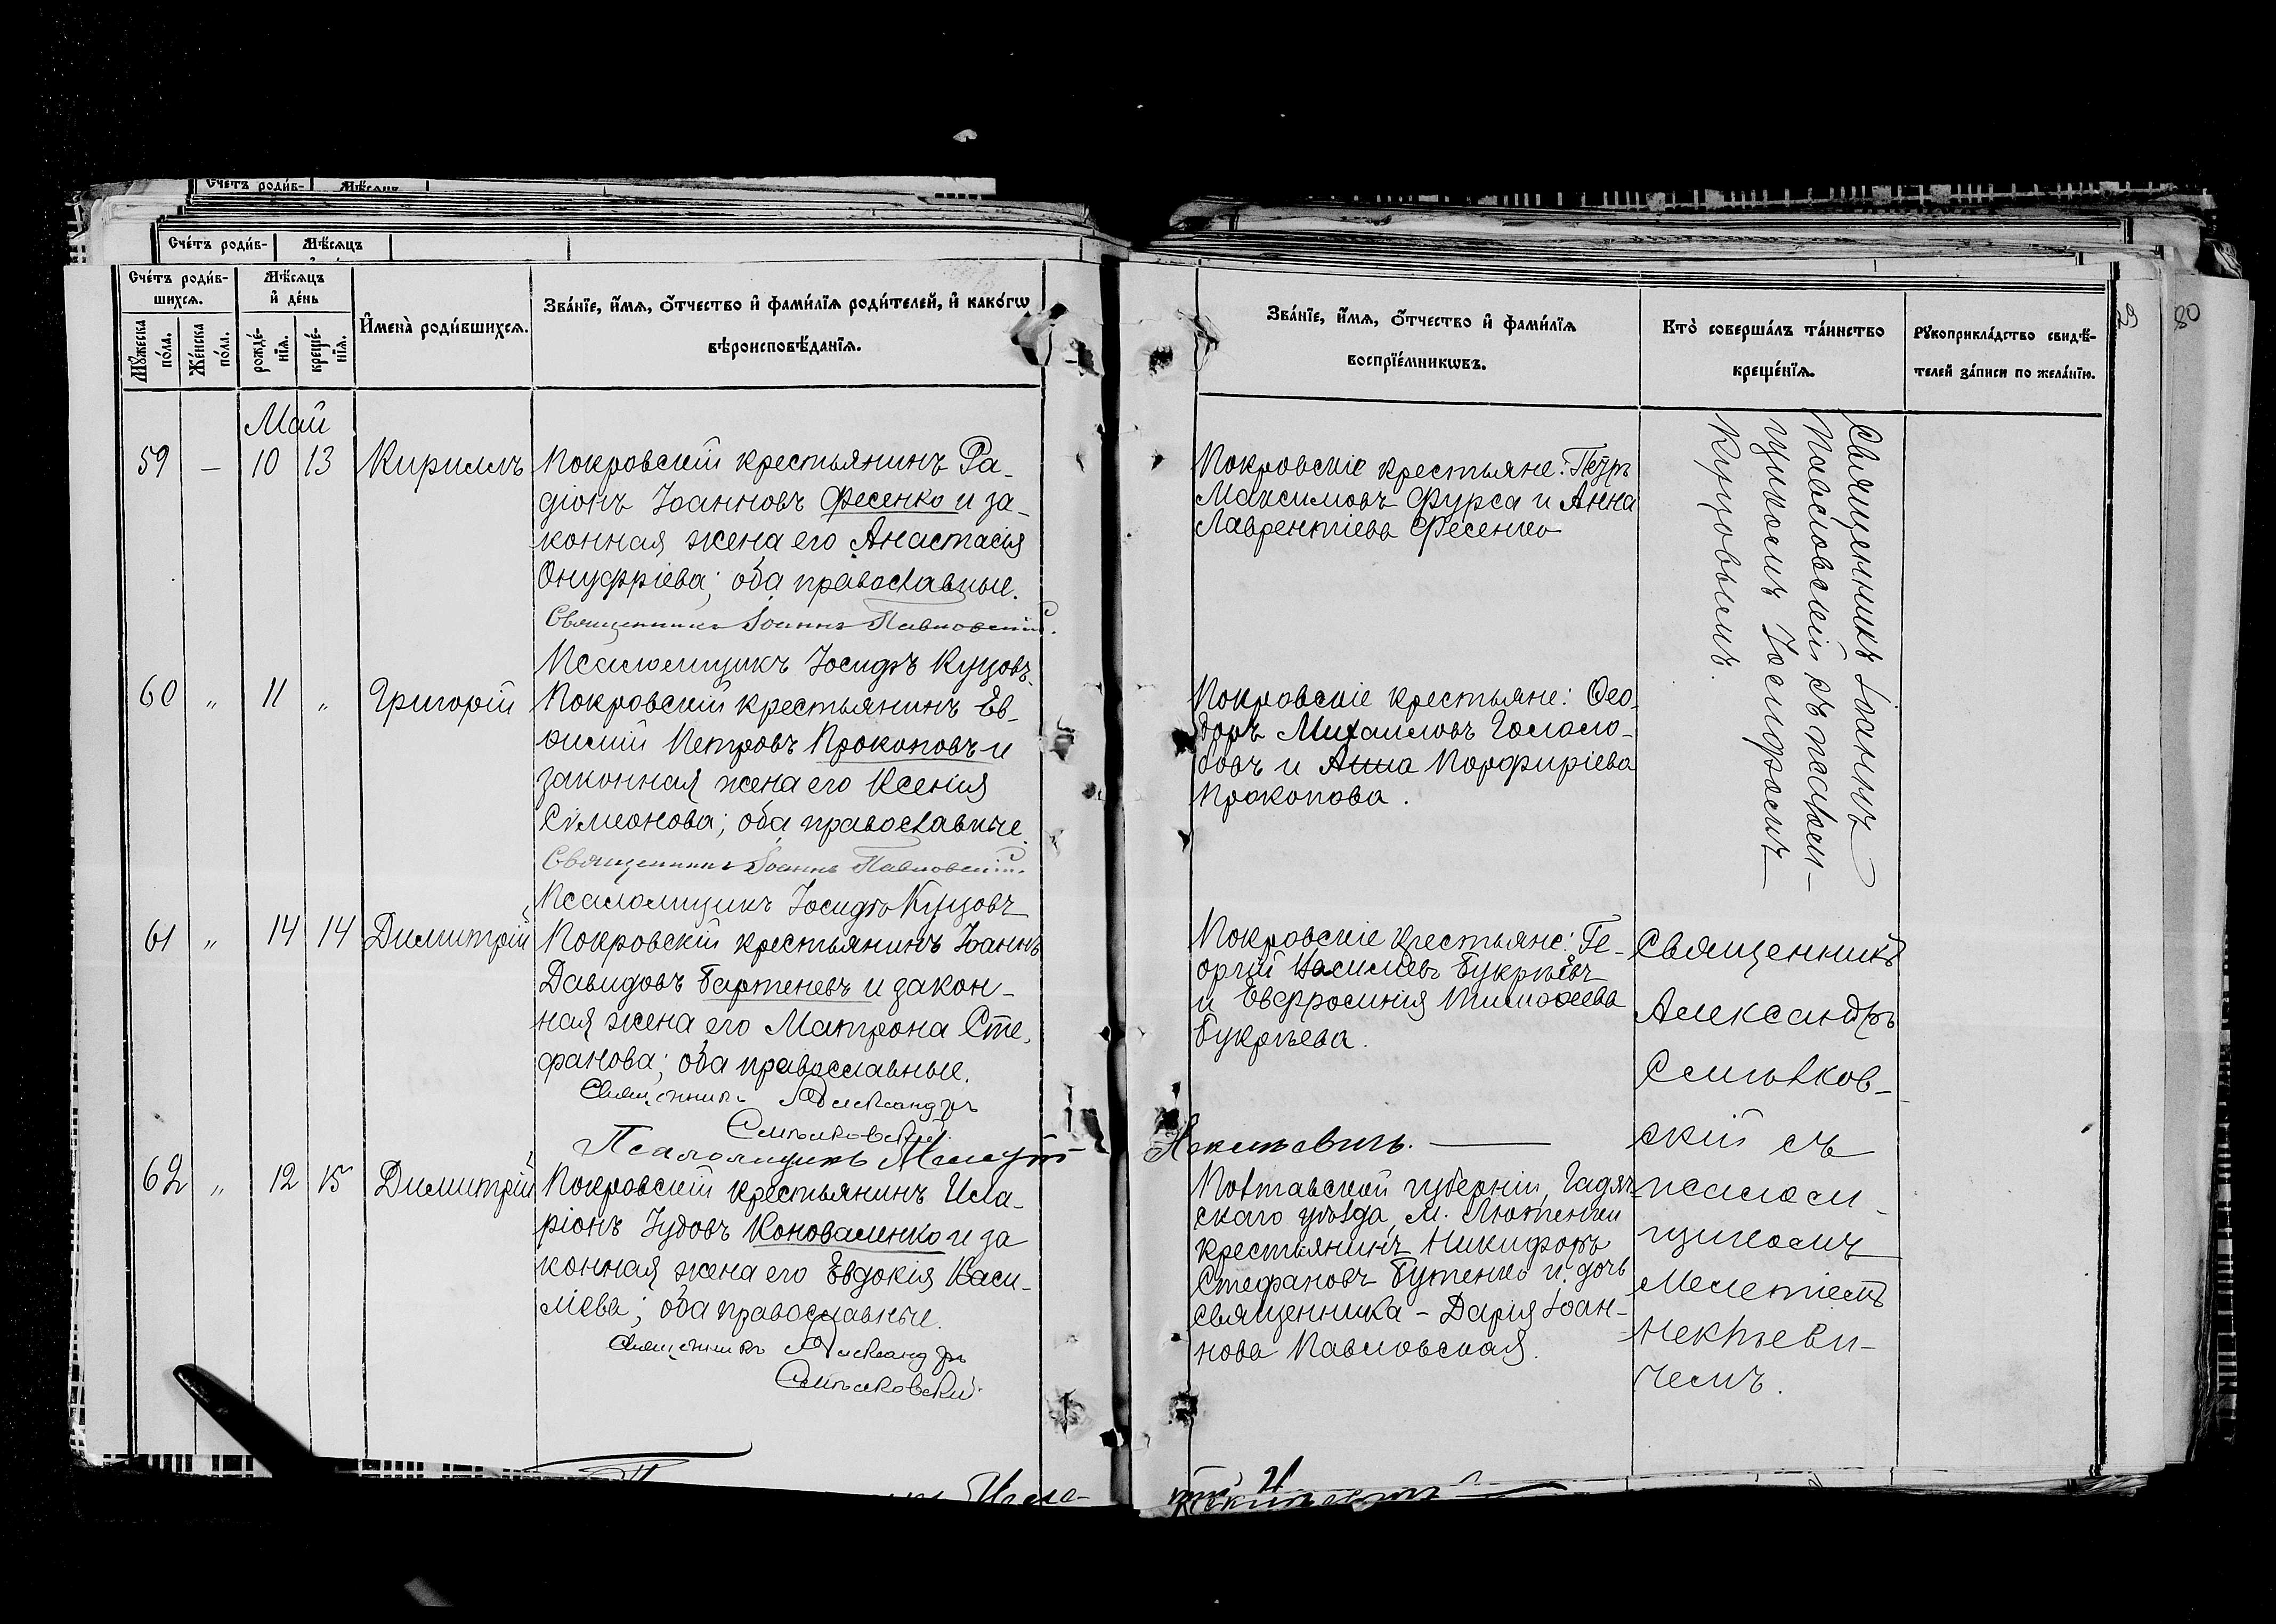 Счетъ родив-
Мѣсяцъ
Счетъ родив-
Мѣсяцъ
Счетъ родив-
шихся.
Мѣсяцъ
и день
Мужеска
пола.
Женска
пола.
рожде-
нія.
креще-
нія.
Имена родившихся.
Званіе, имя, отчество и фамилія родителей, и какого
вѣроисповѣданія.
Званіе, имя, отчество и фамилія
воспріемниковъ.
Кто совершалъ таинство
крещенія.
Рукоприкладство свидѣ-
телей записи по желанію.
29
80
Май
59 — 10 13 Кириллъ
Покровскій крестьянинъ Ра-
діонъ Іоанновъ Фесенко и за-
конная жена его Анастасія
Онуфріева; оба православные.
Священникъ Іоаннъ Павловскій.
Псаломщикъ Іосифъ Куцовъ.
Покровскіе крестьяне: Петръ
Максимовъ Фурса и Анна
Лаврентіева Фесенко
Священникъ Іоаннъ
Павловскій съ псалом-
щикомъ Іосифомъ
Куцовымъ.
60 „ 11 „ Григорій
Покровскій крестьянинъ Ев-
ѳимій Петровъ Прокоповъ и
законная жена его Ксенія
Сѵмеонова; оба православные.
Священникъ Іоаннъ Павловскій.
Псаломщикъ Іосифъ Куцовъ
Покровскіе крестьяне: Ѳео-
доръ Михаиловъ Гололо-
бовъ и Анна Порфиріева
Прокопова.
61 „ 14 14 Димитрій
Покровскій крестьянинъ Іоаннъ
Давидовъ Бартеневъ и закон-
ная жена его Матрона Сте-
фанова; оба православные.
Священникъ Александръ
Смѣлковскій.
Псаломщикъ Мелетій
Некѣевичъ.
Покровскіе крестьяне: Ге-
оргій Василіевъ Букрѣевъ
и Евфросинія Тимоѳеева
Букрѣева.
Священникъ
Александръ
Смѣлков-
скій съ
псалом-
щикомъ
Мелетіемъ
Некѣеви-
чемъ.
62 „ 12 15 Димитрій
Покровскій крестьянинъ Ила-
ріонъ Іудовъ Коноваленко и за
конная жена его Евдокія Васи-
ліева; оба православные.
Священникъ Александръ
Смѣлковскій.
Полтавской губерніи, Гадяч-
скаго уѣзда, м. Лютеньки
крестьянинъ Никифоръ
Стефановъ Бутенко и дочь
священника - Дарія Іоан-
нова Павловская.